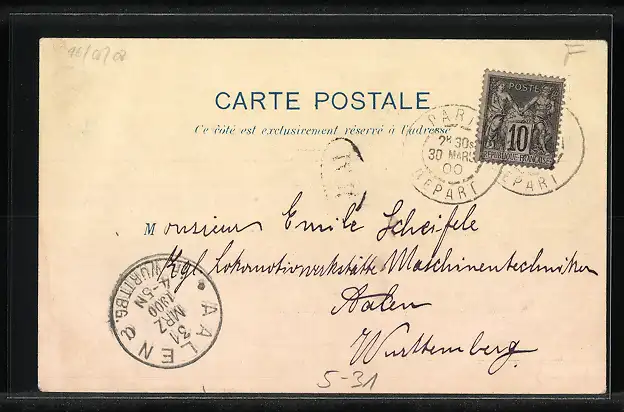 F
CARTE POSTALE
Ce côté est exclusivement réservé à l'adresse
POSTES
10
REPUBLIQUE FRANÇAISE
PARIS
30S
30 MARS
00
DEPART
DEPART
Monsieur Emile Scheifele
Kgl Lokomotivwerkstätte Maschinentechniker
Aalen
Württemberg
AALEN
31
MRZ
1900
4-5N
WÜRTTBG.
5-31